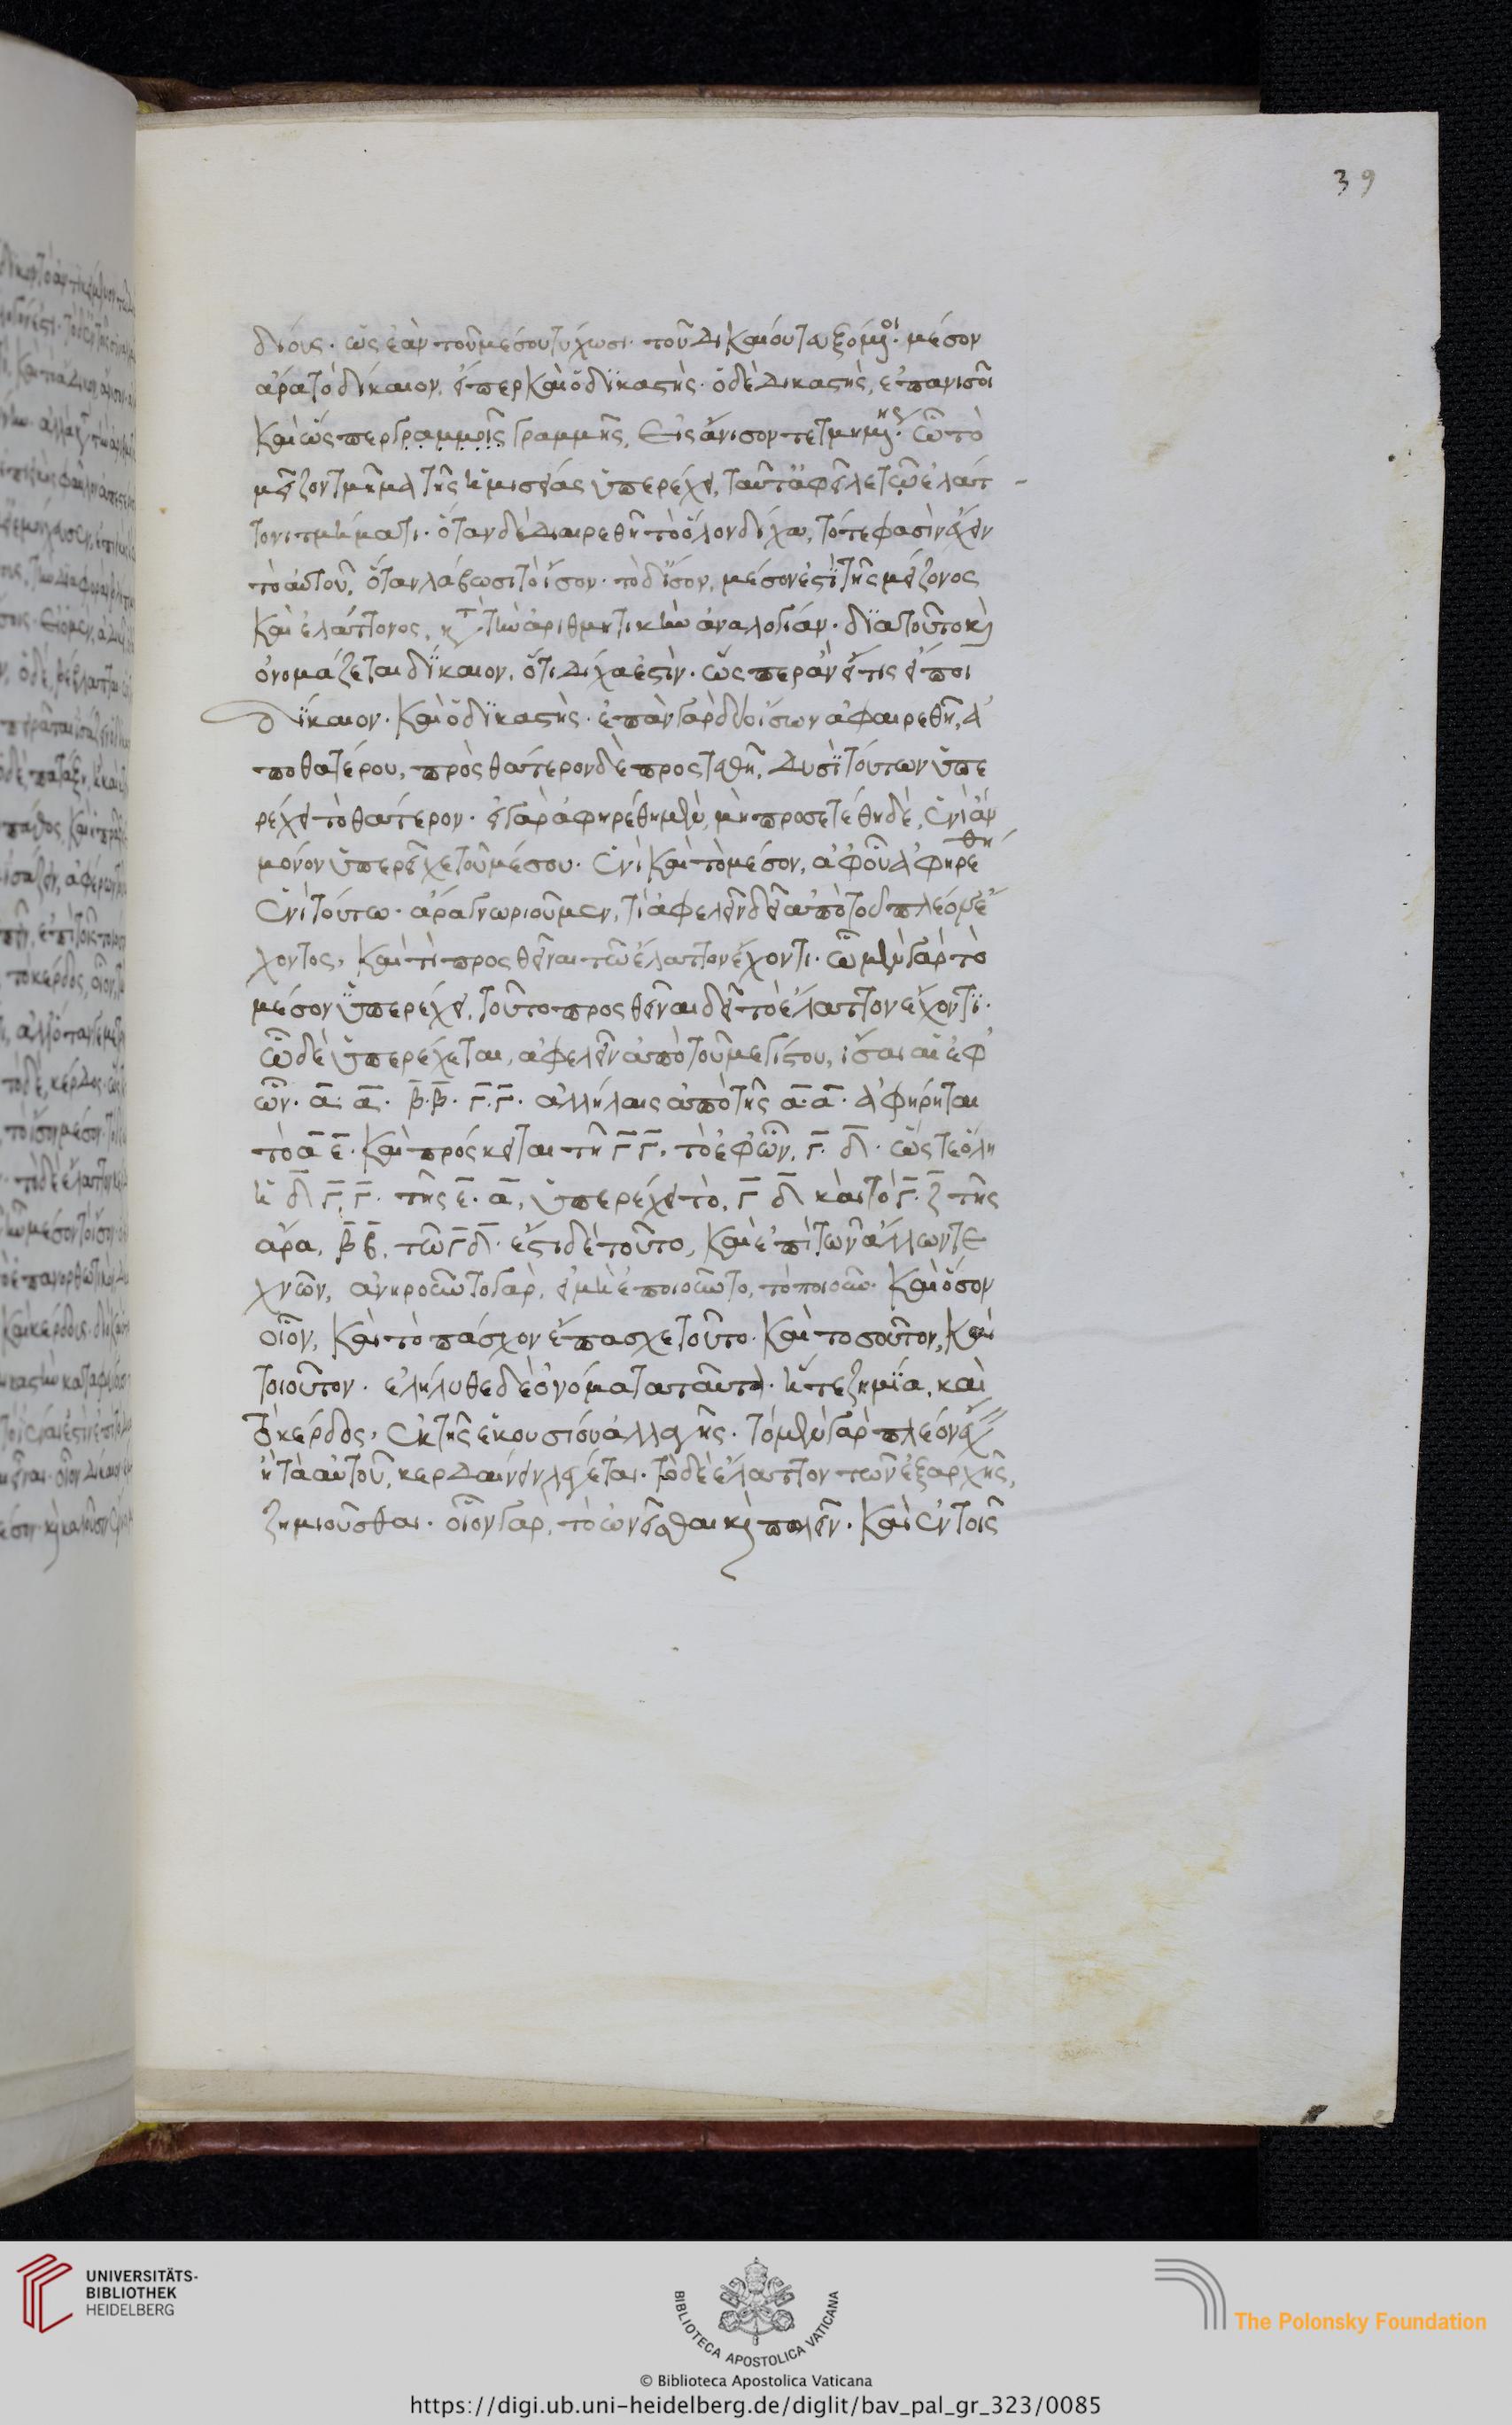 39
δίους. ὡς ἐὰν τοῦ μέσου τύχωσι. τοῦ δικαίου τευξόμενοι. μέσον
ἄρα τὸ δίκαιον, εἴπερ καὶ ὁ δικαστής. ὁ δὲ δικαστής, ἐπανισοῖ
καὶ ὥσπερ γραμμῆς, εἰς ἄνισον τετμημένης. ὧ τὸ
μεῖζον τμῆμα τῆς ἡμισείας ὑπερέχει, ταῦτ' ἀφεῖλε τῶ ἐλατ-
τονι τμήματι. ὅταν δὲ διαιρεθῆ τὸ ὅλον δίχα, τότε φασὶν ἔχειν
τὸ αὑτοῦ, ὅταν λάβωσι τὸ ἴσον. τὸ δ' ἴσον, μέσον ἐστὶ τῆς μείζονος
καὶ ἐλάττονος, κατὰ τὴν ἀριθμητικὴν ἀναλογίαν. διὰ τοῦτο καὶ
ὀνομάζεται δίκαιον, ὅτι δίχα ἐστὶν. ὥσπερ ἂν εἴ τις εἴποι
δίκαιον. καὶ ὁ δικαστής. ἐπὰν γὰρ δύο ἴσων ἀφαιρεθῆ, ἀ
πὸ θατέρου, πρὸς θάτερον δὲ προστεθῆ, δυσὶ τούτων ὑπε
ρέχει τὸ θάτερον. εἰ γὰρ ἀφηρέθη μὲν, μὴ προσετέθη δὲ, ἑνὶ ἂν
μόνον ὑπερεῖχε τοῦ μέσου. ἑνὶ καὶ τὸ μέσον, ἀφ' οὗ ἀφηρέθη
ἑνὶ τούτω. ἄρα γνωριοῦμεν, τί ἀφελεῖν δεῖ ἀπὸ τοῦ πλέον ἔ
χοντος, καὶ τί προσθεῖναι τῶ ἔλαττον ἔχοντι. ὧ μὲν γὰρ τὸ
μέσον ὑπερέχει, τοῦτο προσθεῖναι δεῖ τὸ ἔλαττον ἔχοντι.
ὧ δὲ ὑπερέχεται, ἀφελεῖν ἀπὸ τοῦ μεγίστου, ἴσαι αἱ ἐφ'
ὧν. α. α. β. β. γ. γ. ἀλλήλαις ἀπὸ τῆς α. α. ἀφηρήται
τὸ α ε. καὶ πρόσκειται τῆ γ γ. τὸ ἐφ' ὧν, γ. δ. ὥστε ὅλη
ἡ δ γ. γ. τῆς ε. α, ὑπερέχει τὸ, γ δ καὶ τὸ γ. ζ τῆς
ἄρα, β β, τῶ γ δ. ἔστι δὲ τοῦτο, καὶ ἐπὶ τῶν ἄλλων τε
χνῶν, ἀνηροῦντο γὰρ, εἰ μὴ ἐποιοῦντο, τὸ ποιοῦν. καὶ ὅσον
οἷον, καὶ τὸ πάσχον ἔπασχε τοῦτο. καὶ τοσοῦτον, καὶ
τοιοῦτον. ἐλήλυθε δὲ ὀνόματα ταῦτα. ἥ τε ζημία, καὶ
τὸ κέρδος, ἐκ τῆς ἑκουσίου ἀλλαγῆς. τὸ μὲν γὰρ πλέον ἔχειν
ἢ τὰ αὑτοῦ, κερδαίνειν λέγεται. τὸ δὲ ἔλαττον τῶν ἐξαρχῆς,
ζημιοῦσθαι. οἷον γὰρ, τὸ ὠνεῖσθαι καὶ πωλεῖν. καὶ ἐν τοῖς
UNIVERSITÄTS-
BIBLIOTHEK
HEIDELBERG
BIBLIOTECA APOSTOLICA VATICANA
The Polonsky Foundation
© Biblioteca Apostolica Vaticana
https://digi.ub.uni-heidelberg.de/diglit/bav_pal_gr_323/0085